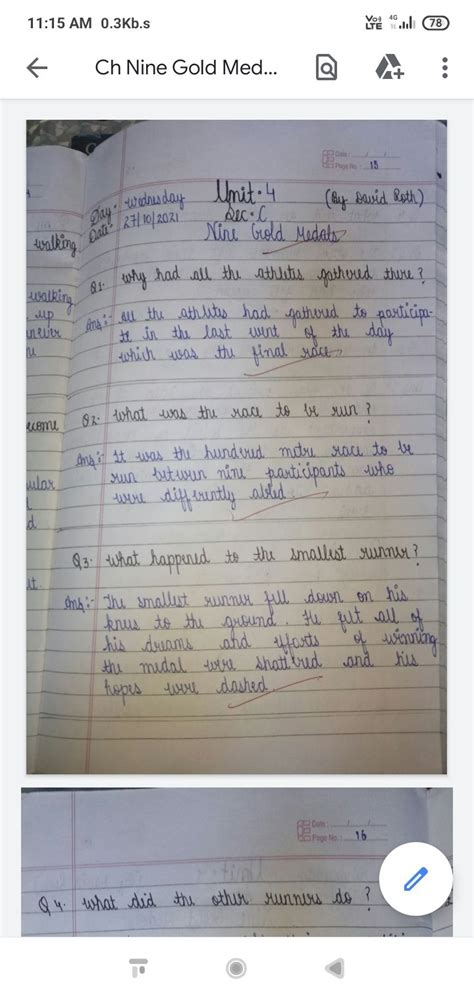 11:15 AM 0.3Kb.s
Vo)) LTE 4G 78
Ch Nine Gold Med...
Date : __/__/__
Page No. : 15
Day - Wednesday
Date - 27/10/2021
Unit - 4
Sec - C
(By David Roth)
Nine Gold Medals
walking
walking
up
never
ecome
ular
d
Q1. Why had all the athletes gathered there ?
Ans:- All the athletes had gathered to participa-
te in the last event of the day
which was the final race
Q2. What was the race to be run ?
Ans:- It was the hundred metre race to be
run between nine participants who
were differently abled.
Q3- What happened to the smallest runner ?
Ans:- The smallest runner fell down on his
knees to the ground. He felt all of
his dreams and efforts of winning
the medal were shattered and his
hopes were dashed.
Date : __/__/__
Page No. : 16
Q4. What did the other runners do ?